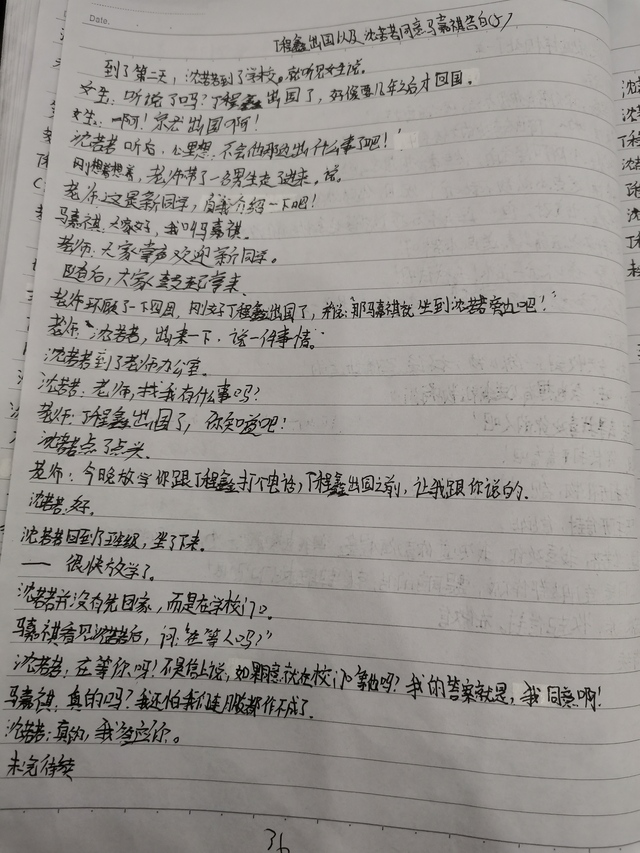 Date.
丁程鑫出国以及沈若若同意马嘉祺告白(5)
到了第二天，沈若若到了学校。就听见女生说。
女生：听说了吗？丁程鑫出国了，好像要几年之后才回国。
女生：啊！突然出国啊！
沈若若听后，心里想，不会他那边出什么事了吧！
刚想着想着，老师带了一名男生走了进来，说。
老师：这是新同学，自我介绍一下吧！
马嘉祺：大家好，我叫马嘉祺。
老师：大家掌声欢迎新同学。
随后，大家鼓起了掌来
老师环顾了一下四周，刚好丁程鑫出国了，那马嘉祺就坐到沈若若旁边吧！
老师："沈若若，出来一下，说一件事情。"
沈若若到了老师办公室。
沈若若：老师，找我有什么事吗？
老师：丁程鑫出国了，你知道吧！
沈若若点了点头
老师：今晚放学你跟丁程鑫打个电话，丁程鑫出国之前，让我跟你说的.
沈若若：好.
沈若若回到了班级，坐了下来。
—— 很快放学了。
沈若若并没有先回家，而是在学校门口。
马嘉祺看见沈若若后，问："在等人吗？"
沈若若：在等你呀！不是信上说，如果同意就在校门口等你吗？我的答案就是，我同意啊！
马嘉祺：真的吗？我还怕我们连朋友都作不成了.
沈若若：真的，我答应你。
未完待续
36